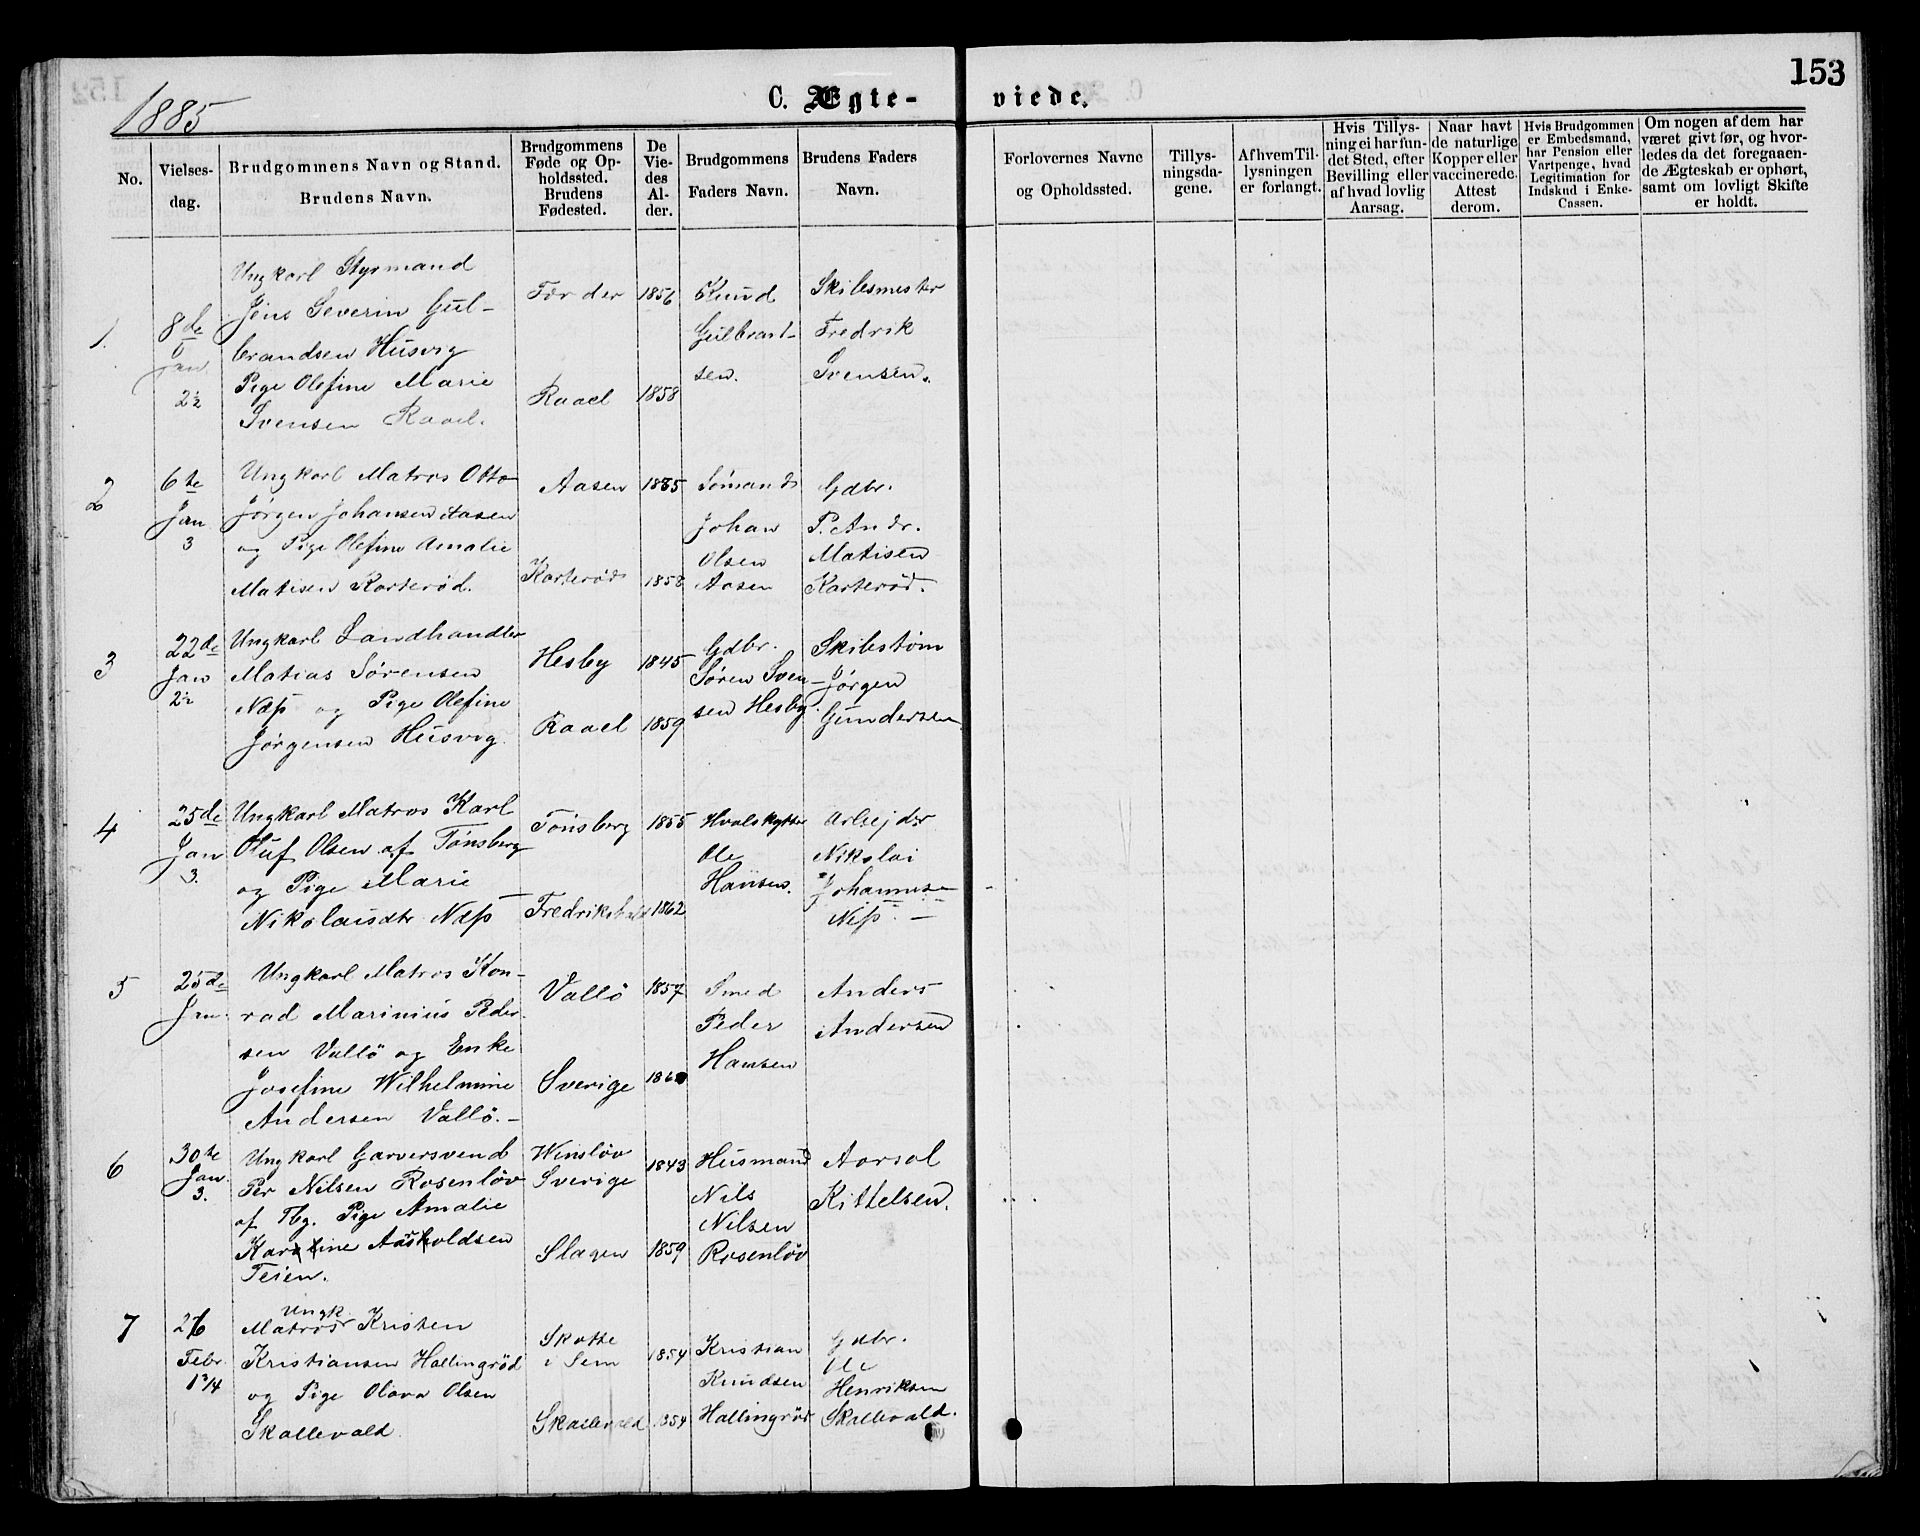 153
1885
C. Ægte-
viede.
No.
Vielses-
dag.
Brudgommens Navn og Stand.
Brudens Navn.
Brudgommens
Føde og Op-
holdssted.
Brudens
Fødested.
De
Vie-
des
Al-
der.
Brudgommens
Faders Navn.
Brudens Faders
Navn.
Forlovernes Navne
og Opholdssted.
Tillys-
ningsda-
gene.
Af hvem Til-
lysningen
er forlangt.
Hvis Tillys-
ning ei har fun-
det Sted, efter
Bevilling eller
af hvad lovlig
Aarsag.
Naar havt
de naturlige
Kopper eller
vaccinerede.
Attest
derom.
Hvis Brudgommen
er Embedsmand,
har Pension eller
Vartpenge, hvad
Legitimation for
Indskud i Enke-
Cassen.
Om nogen af dem har
været givt før, og hvor-
ledes da det foregaaen-
de Ægteskab er ophørt,
samt om lovligt Skifte
er holdt.
1.
8de
Jan
2½
Ungkarl Styrmand
Jens Severin Gul-
brandsen Husvig
Pige Olefine Marie
Svensen Raael.
Færder
Raael
1856
1858
Knud
Gulbrand-
sen.
Skibsmester
Fredrik
Svensen.
2
6te
Jan
3
Ungkarl Matros Otto
Jørgen Johansen Aasen
og Pige Olefine Amalie
Matisen Korterød.
Aasen
Korterød
1885
1858
Sømand
Johan
Olsen
Aasen
Gdbr.
P. Andr.
Matisen
Korterød.
3
22de
Jan
2½
Ungkarl Landhandler
Matias Sørensen
Næss og Pige Olefine
Jørgensen Husvig.
Hesby
Raael
1845
1859
Gdbr.
Søren Sven-
sen Hesby.
Skibstøm
Jørgen
Gundersen
4
25de
Jan
3.
Ungkarl Matros Karl
Oluf Olsen af Tønsberg
og Pige Marie
Nikolaisdtr Næss
Tønsberg
Fredrikshald
1855
1862
Hvalskytter
Ole
Hansen.
Arbejder
Nikolai
Johannesen
Næss.
5
25de
Jan.
Ungkarl Matros Kon-
rad Marinius Peder-
sen Vallö og Enke
Josefine Wilhelmine
Andersen Vallö.-
Vallö
Sverige
1857
Smed
Peder
Hansen
Anders
Andersen
6
30te
Jan.
3.
Ungkarl Garversvend
Per Nilsen Rosenlöv
af Tbg. Pige Amalie
Karoline Aasoldsen
Teien.
Winslöv
Sverige
Slagen
1843
1859
Husmand
Nils
Nilsen
Rosenlöv
Aorsol
Kittelsen.
7
26
Febr.
1¾
Ungk.
Matros Kristen
Kristiansen Hallingrød
og Pige Olava Olsen
Skallevald.
Skotte
i Sem
Skallevald
1854
1854
Kristian
Knudsen
Hallingrød
Gdbr.
Ole
Henriksen
Skallevald.